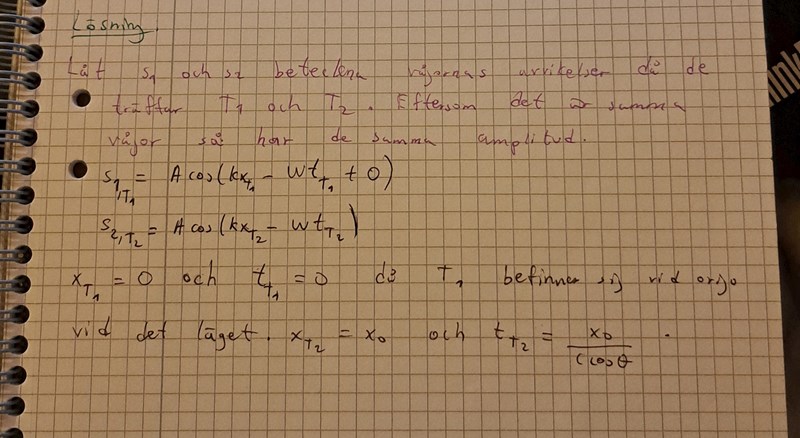 Lösning.
Låt s₁ och s₂ beteckna vågornas avvikelser då de
träffar T₁ och T₂. Eftersom det är samma
vågor så har de samma amplitud.
s₁,T₁ = A cos(kx_T₁ - wt_T₁ + 0)
s₂,T₂ = A cos(kx_T₂ - wt_T₂)
x_T₁ = 0 och t_T₁ = 0 då T₁ befinner sig vid origo
vid det läget. x_T₂ = x₀ och t_T₂ = x₀/(c cosθ).